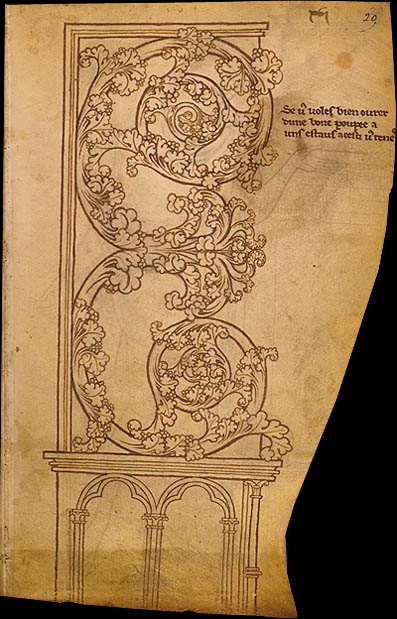 xxvi 29
Se uˢ uoleſ bien ourer
dune bone poupee a
unſ eſtauſ a ceſti uˢ tenes